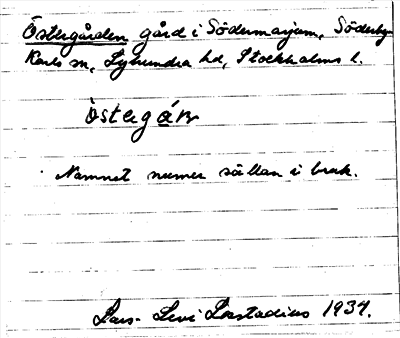 Östergården gård i Södermarjum, Söderby-
Karls sn, Lyhundra hd, Stockholms l.
östergá́rn
Namnet numer sällan i bruk.
Lars-Levi Læstadius 1934.